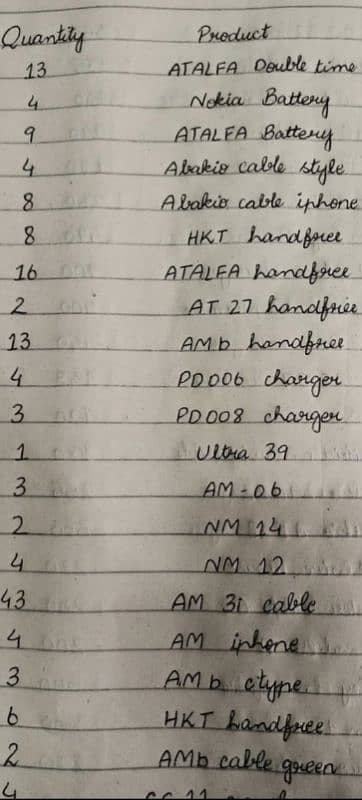 Quantity Product
13 ATALFA Double time
4 Nokia Battery
9 ATALFA Battery
4 Abakio cable style
8 Abakio cable iphone
8 HKT handfree
16 ATALFA handfree
2 AT 27 handfree
13 AMb handfree
4 PD006 charger
3 PD008 charger
1 Ultra 39
3 AM-06
2 NM 14
4 NM 12
43 AM 3i cable
4 AM iphone
3 AMb ctype
6 HKT handfree
2 AMb cable green
4